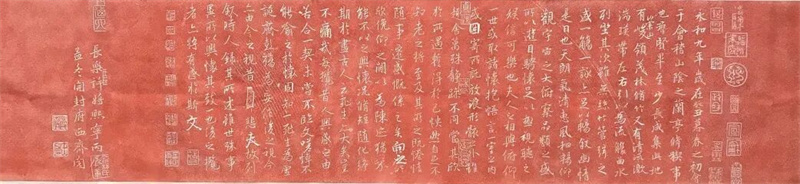 永和九年歲在癸丑暮春之初會
于會稽山陰之蘭亭脩稧事
也羣賢畢至少長咸集此地
有崇山峻領茂林脩竹又有清流激
湍暎帶左右引以為流觴曲水
列坐其次雖無絲竹管弦之
盛一觴一詠亦足以暢敘幽情
是日也天朗氣清惠風和暢仰
觀宇宙之大俯察品類之盛
所以遊目騁懷足以極視聽之
娛信可樂也夫人之相與俯仰
一世或取諸懷抱悟言一室之內
或因寄所託放浪形骸之外雖
趣舍萬殊靜躁不同當其欣
於所遇蹔得於己怏然自足不
知老之將至及其所之既惓情
隨事遷感慨係之矣向之所
欣俛仰之閒以為陳迹猶不
能不以之興懷況脩短隨化終
期於盡古人云死生亦大矣豈
不痛哉每攬昔人興感之由
若合一契未嘗不臨文嗟悼不
能喻之於懷固知一死生為虛
誕齊彭殤為妄作後之視今
亦由今之視昔悲夫故列
敘時人錄其所述雖世殊事
異所以興懷其致一也後之攬
者亦將有感於斯文
長樂許將熙寧丙辰
孟冬開封府西齋閱